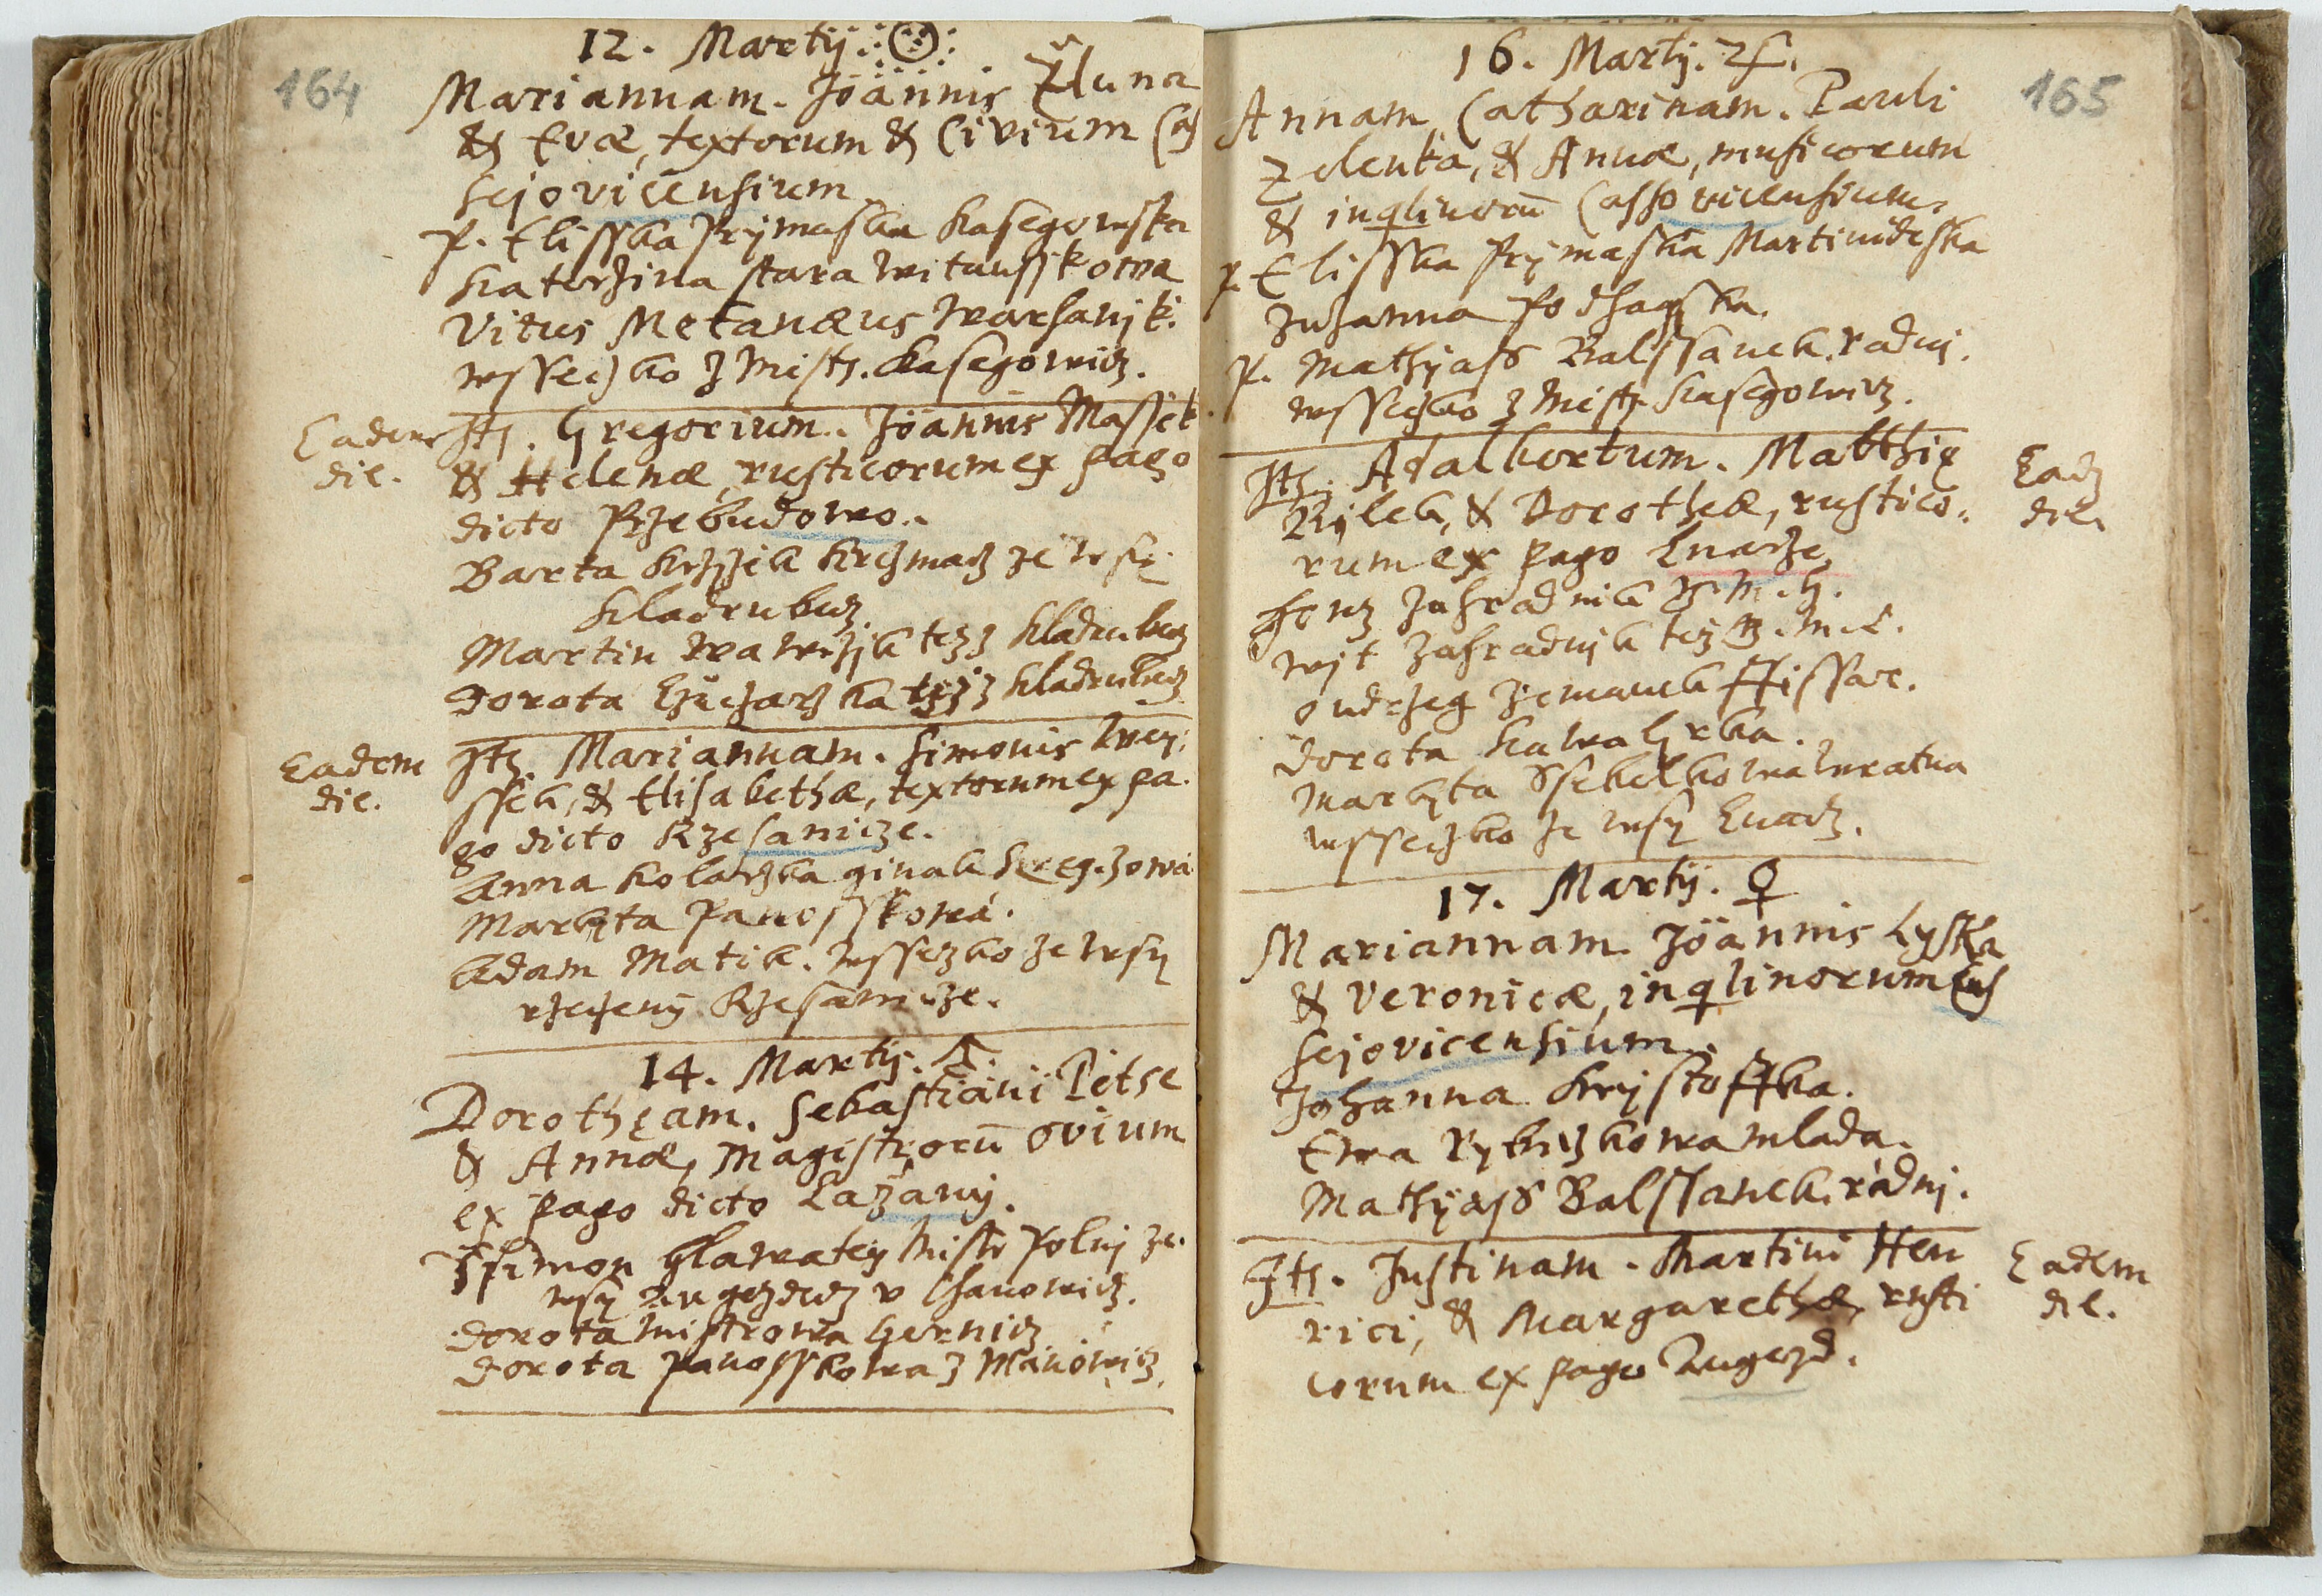 164
12. Martÿ. ☉
Mariannam. Jöännis Žluna
& Evæ, textorum & Civium Cas
sejovicensium
P. Elisska Prymaska Kasegowska
Katerzina stara Witausskowa
Vitus Metanæus Warhanjk.
wsseczko z Mist. Kasegowicz.
Eadem die.
Its. Gregorium. Jöännis Massek
& Helenæ, rusticorum ex pago
dicto Przebudowo.
Barta krzjzek krczmarz ze wsy
Kladrubecz
Martin Wawrzjk tez z Kladrubecz
Dorota tez z Kladrubecz
Eadem die.
Its Mariannam. Simonis Wey:
ssek, & Elisabethæ, textorum ex pa.
go dicto Rzesanicze.
Anna kolarzka ginak
Markyta Panosskowá.
Adam Matik. wsseczko ze wsy
rzeczeny Rzesanicze.
14. Martÿ. ♂.
Dorotheam. Sebastiani Petse
& Annæ, Magistrorū ovium
ex pago dicto Lažanÿ.
Ssimon hlawatey Mistr Polnj ze
wsy Augezdecz v Chanowicz.
Dorota Mistrowa Gernicz
Dorota Panosskowa z Manowicz.
165
16. Martÿ. ♃.
Annam Catharinam. Pauli
Zelenka, & Annæ, musicorum
& inqlinorū Cassovicensium.
P. Elisska Prymaska Martinideska
Zuzanna Podhagska.
P. Mathyass Balssanek. radnj.
wsseczko z Mist. Kasegowicz.
Eadē die.
Its. Adalbertum. Matthię
Bylek, & Dorotheæ, rustico.
rum ex pago Lnarze
honz Zahradnik z. M. H.
Wjt Zahradnjk tez z. M. L.
Ondrzeg Zemanek Fissar.
Dorota
Markyta Ssebelkowa Wratna
wsseczko ze wsy Lnarz.
17. Martÿ. ♀
Mariannam. Jöännis Lyska
& Veronicæ, inqlinorum Cas
sejovicensium.
Johanna Krystoffka.
Ewa Rybiczkowa mlada.
Mathyass Balssanek. rádnj.
Eadem die.
Its. Justinam. Martini Hen
rici, & Margarethæ, rusti
corum ex pago Augezd.